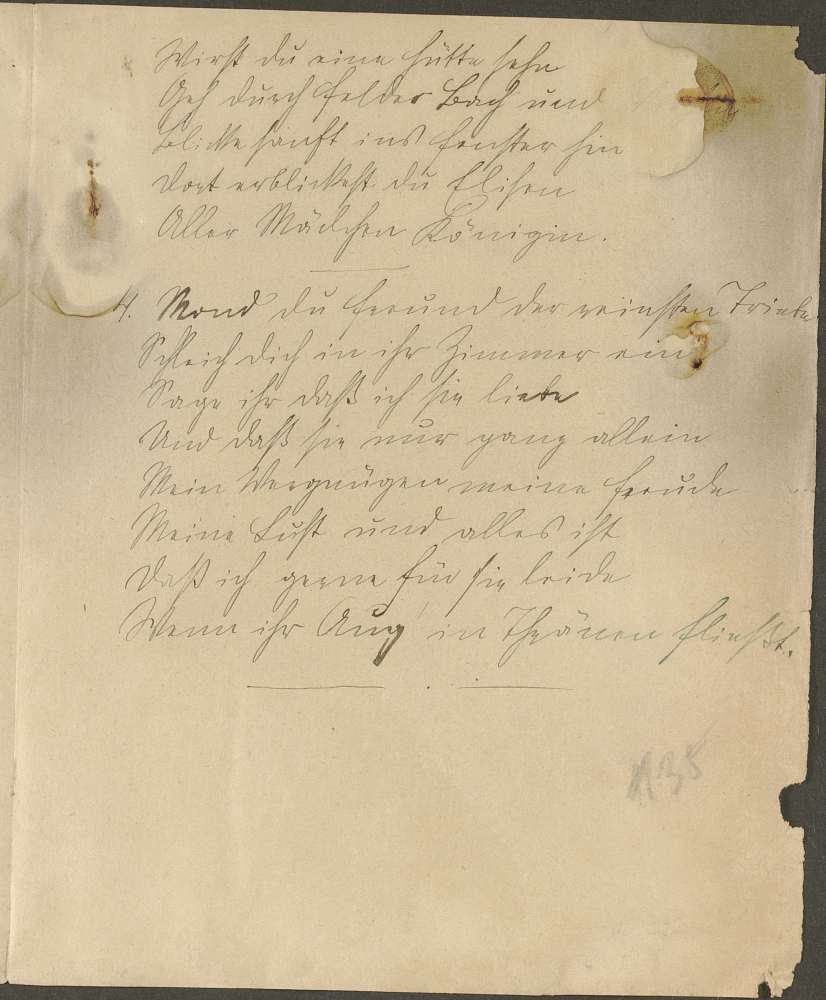 Wirst du eine Hütte sehn
Geh durch Felder Bach und
Blicke sanft ins Fenster hin
Dort erblickest du Elisen
Aller Mädchen Königin.
4. Mond du Freund der reinsten Triebe
Schleich dich in ihr Zimmer ein
Sage ihr daß ich sie liebe
Und daß sie nur ganz allein
Mein Vergnügen meine Freude
Meine Lust und alles ist
Daß ich gerne für sie leide
Wenn ihr Aug in Thränen fließt.